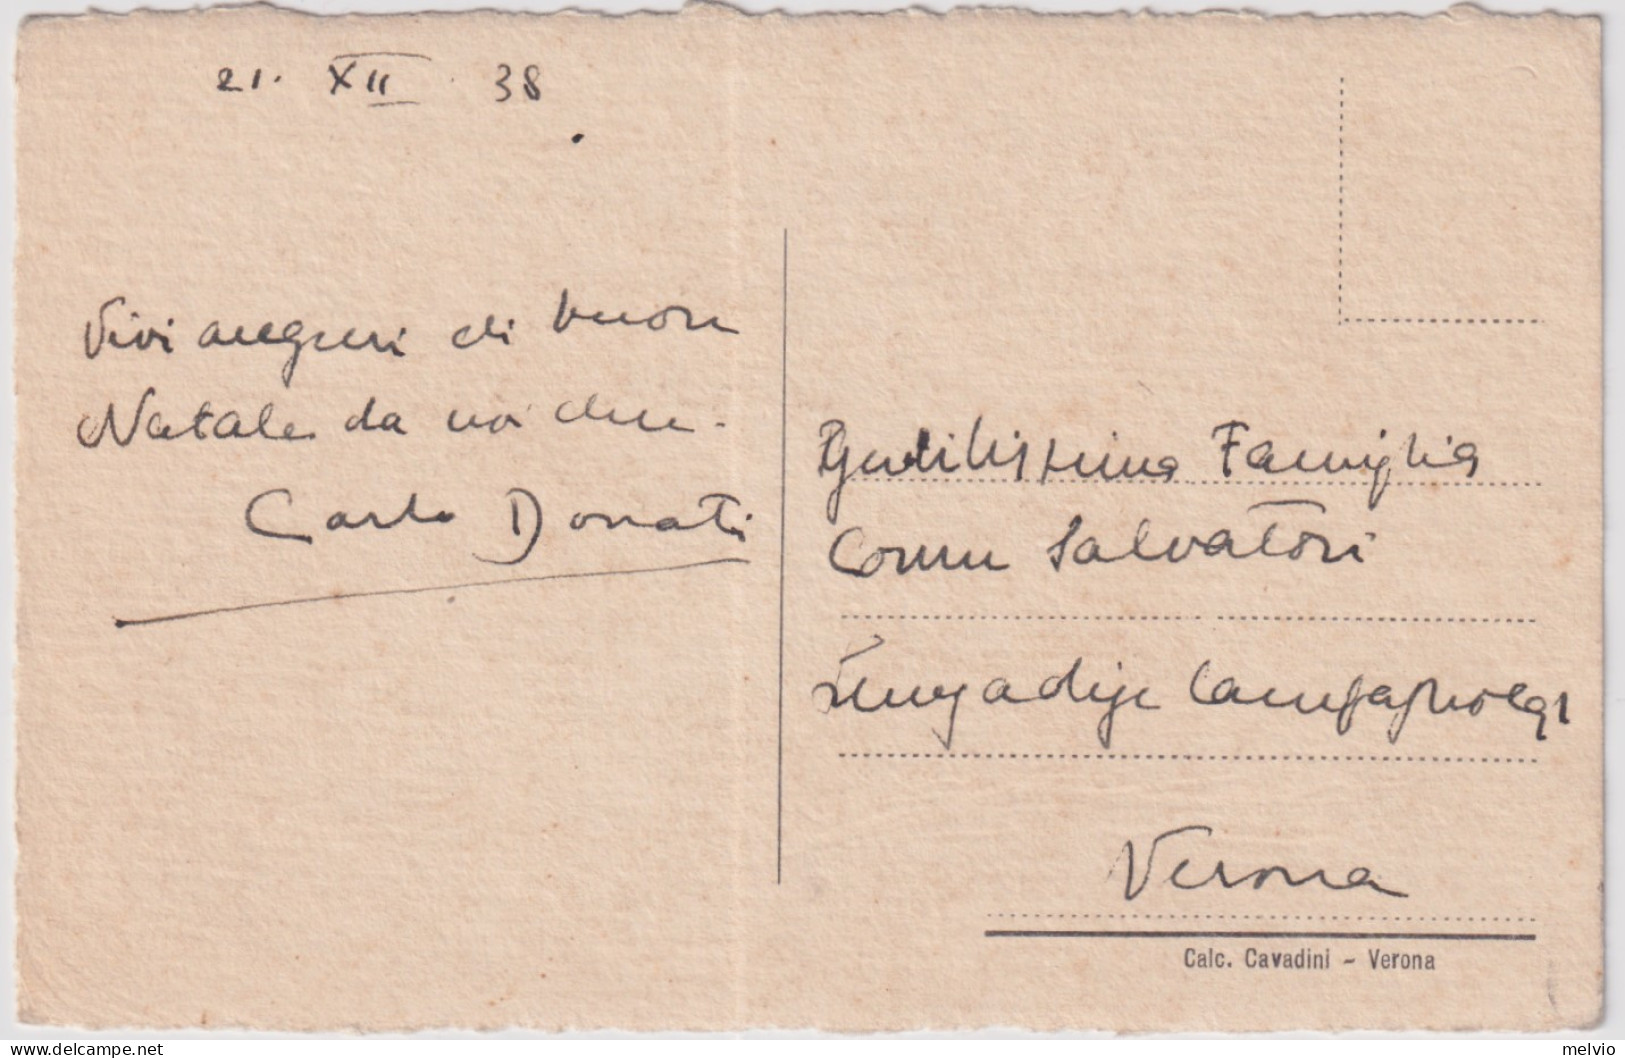 21. XII. 38
Vivi auguri di buon
Natale da noi due.
Carlo Donati
Gentilissima Famiglia
Comm Salvatori
Lungadige Campagnola
Verona
Calc. Cavadini - Verona
melvio